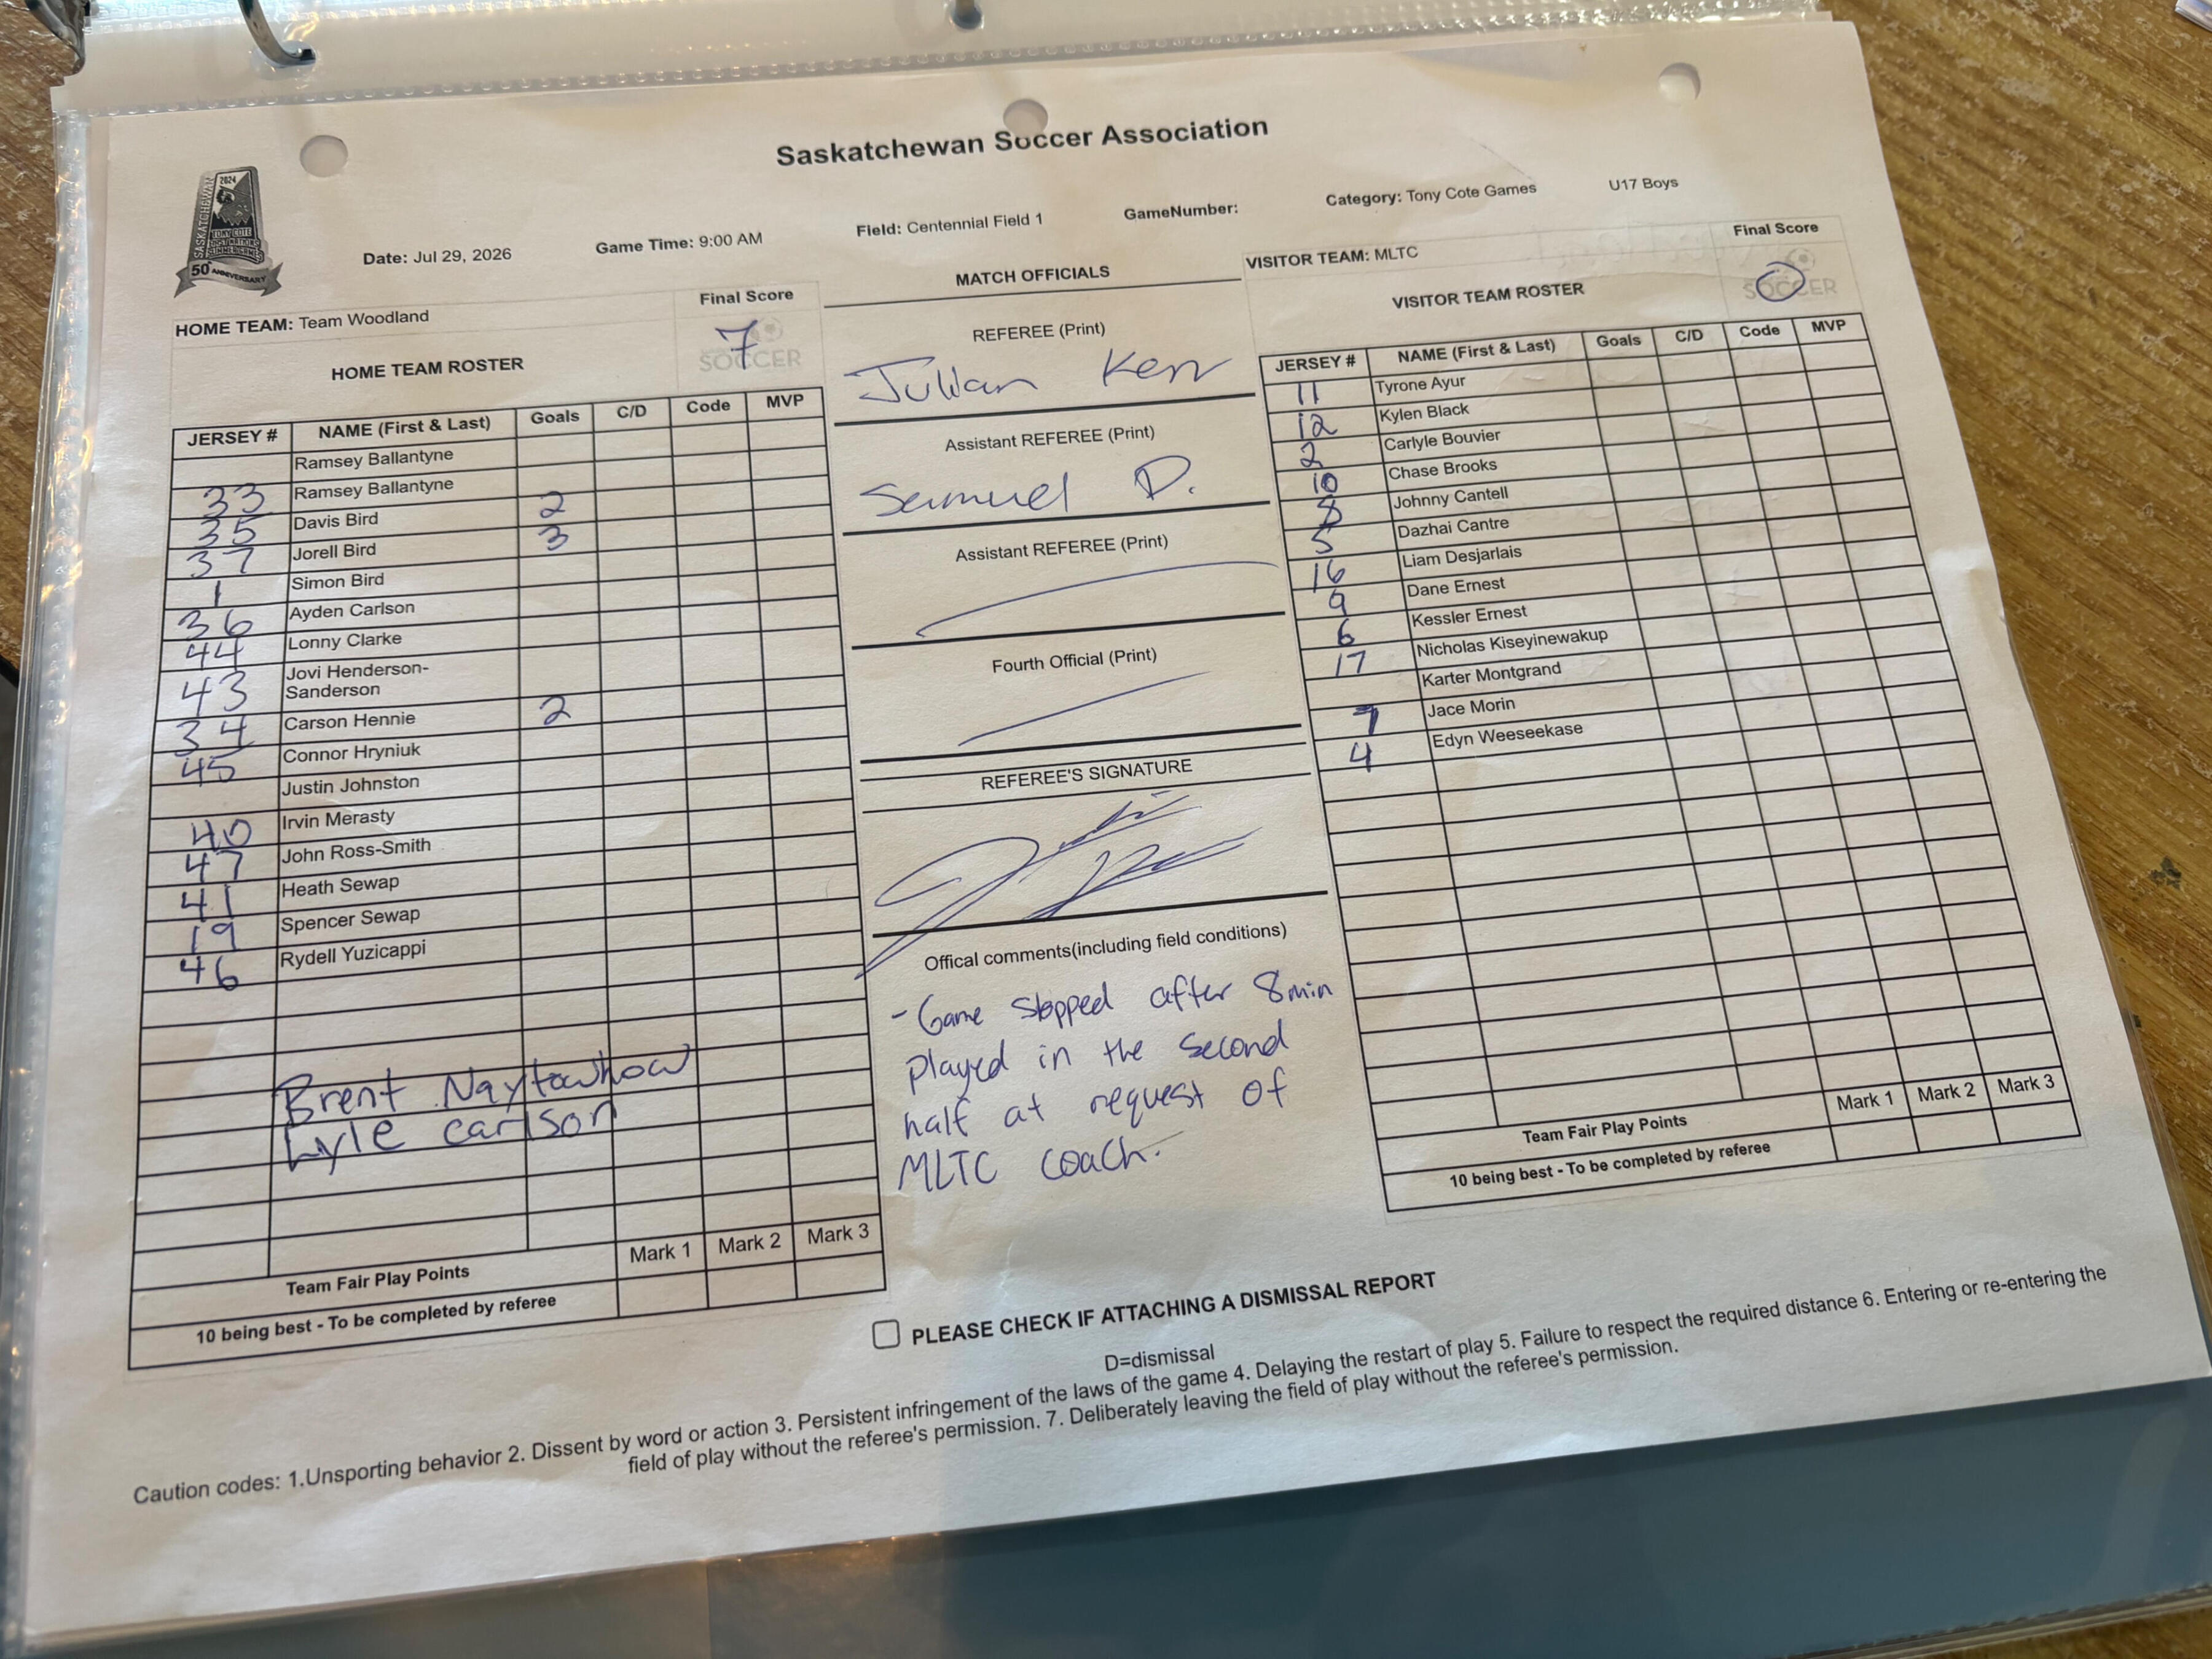 Saskatchewan Soccer Association
2024
SASKATCHEWAN
TONY COTE
SUMMER GAMES
50th ANNIVERSARY
Date: Jul 29, 2026
Game Time: 9:00 AM
Field: Centennial Field 1
GameNumber:
Category: Tony Cote Games
U17 Boys
HOME TEAM: Team Woodland
Final Score
HOME TEAM ROSTER
7
SOCCER
JERSEY # NAME (First & Last) Goals C/D Code MVP
Ramsey Ballantyne
33 Ramsey Ballantyne
35 Davis Bird 2
37 Jorell Bird 3
1 Simon Bird
36 Ayden Carlson
44 Lonny Clarke
43 Jovi Henderson-
Sanderson
34 Carson Hennie 2
45 Connor Hryniuk
Justin Johnston
40 Irvin Merasty
47 John Ross-Smith
41 Heath Sewap
19 Spencer Sewap
46 Rydell Yuzicappi
Brent Naytowhow
Lyle Carlson
Mark 1 Mark 2 Mark 3
Team Fair Play Points
10 being best - To be completed by referee
MATCH OFFICIALS
REFEREE (Print)
Julian Kerr
Assistant REFEREE (Print)
Samuel D.
Assistant REFEREE (Print)
Fourth Official (Print)
REFEREE'S SIGNATURE
Offical comments(including field conditions)
- Game stopped after 8min
played in the second
half at request of
MLTC coach.
VISITOR TEAM: MLTC
Final Score
VISITOR TEAM ROSTER
0
SOCCER
JERSEY # NAME (First & Last) Goals C/D Code MVP
11 Tyrone Ayur
12 Kylen Black
2 Carlyle Bouvier
10 Chase Brooks
8 Johnny Cantell
5 Dazhai Cantre
16 Liam Desjarlais
9 Dane Ernest
6 Kessler Ernest
17 Nicholas Kiseyinewakup
Karter Montgrand
7 Jace Morin
4 Edyn Weeseekase
Mark 1 Mark 2 Mark 3
Team Fair Play Points
10 being best - To be completed by referee
PLEASE CHECK IF ATTACHING A DISMISSAL REPORT
D=dismissal
Caution codes: 1.Unsporting behavior 2. Dissent by word or action 3. Persistent infringement of the laws of the game 4. Delaying the restart of play 5. Failure to respect the required distance 6. Entering or re-entering the
field of play without the referee's permission. 7. Deliberately leaving the field of play without the referee's permission.